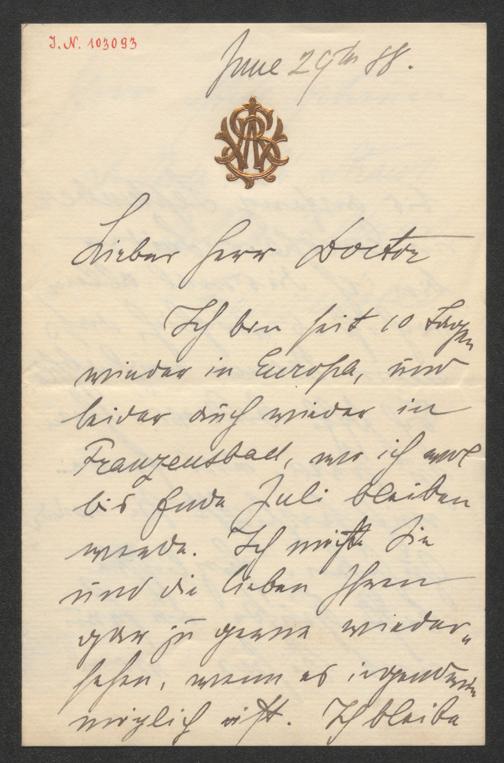 J.N. 103093
June 29th 88.
Lieber Herr Doctor
Ich bin seit 10 Tagen
wieder in Europa, und
leider auch wieder in
Franzensbad, wo ich wol
bis Ende Juli bleiben
werde. Ich möchte Sie
und die lieben Ihren
gar zu gerne wieder-
sehen, wenn es irgendwie
möglich ist. Ich bleibe